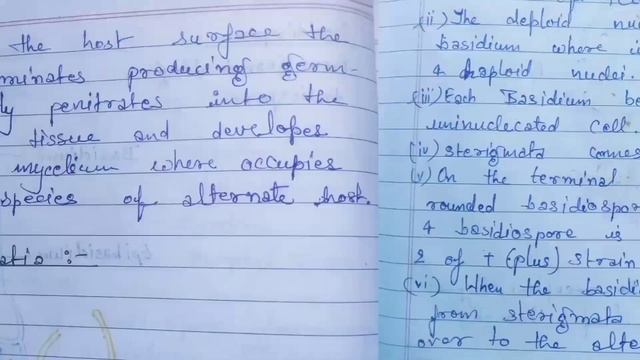 the host surface the
minates producing germ-
ly penitrates into the
tissue and developes
mycelium where occupies
species of alternate host.
atio :-
(ii) The deploid nu
basidium where i
4 haploid nuclei.
(iii) Each Basidium be
uninucleated call
(iv) sterigmata comes
(v) On the terminal
rounded basidiospor
4 basidiospore is
2 of + (plus) strain
(vi) When the basidi
from sterigmata
over to the alte